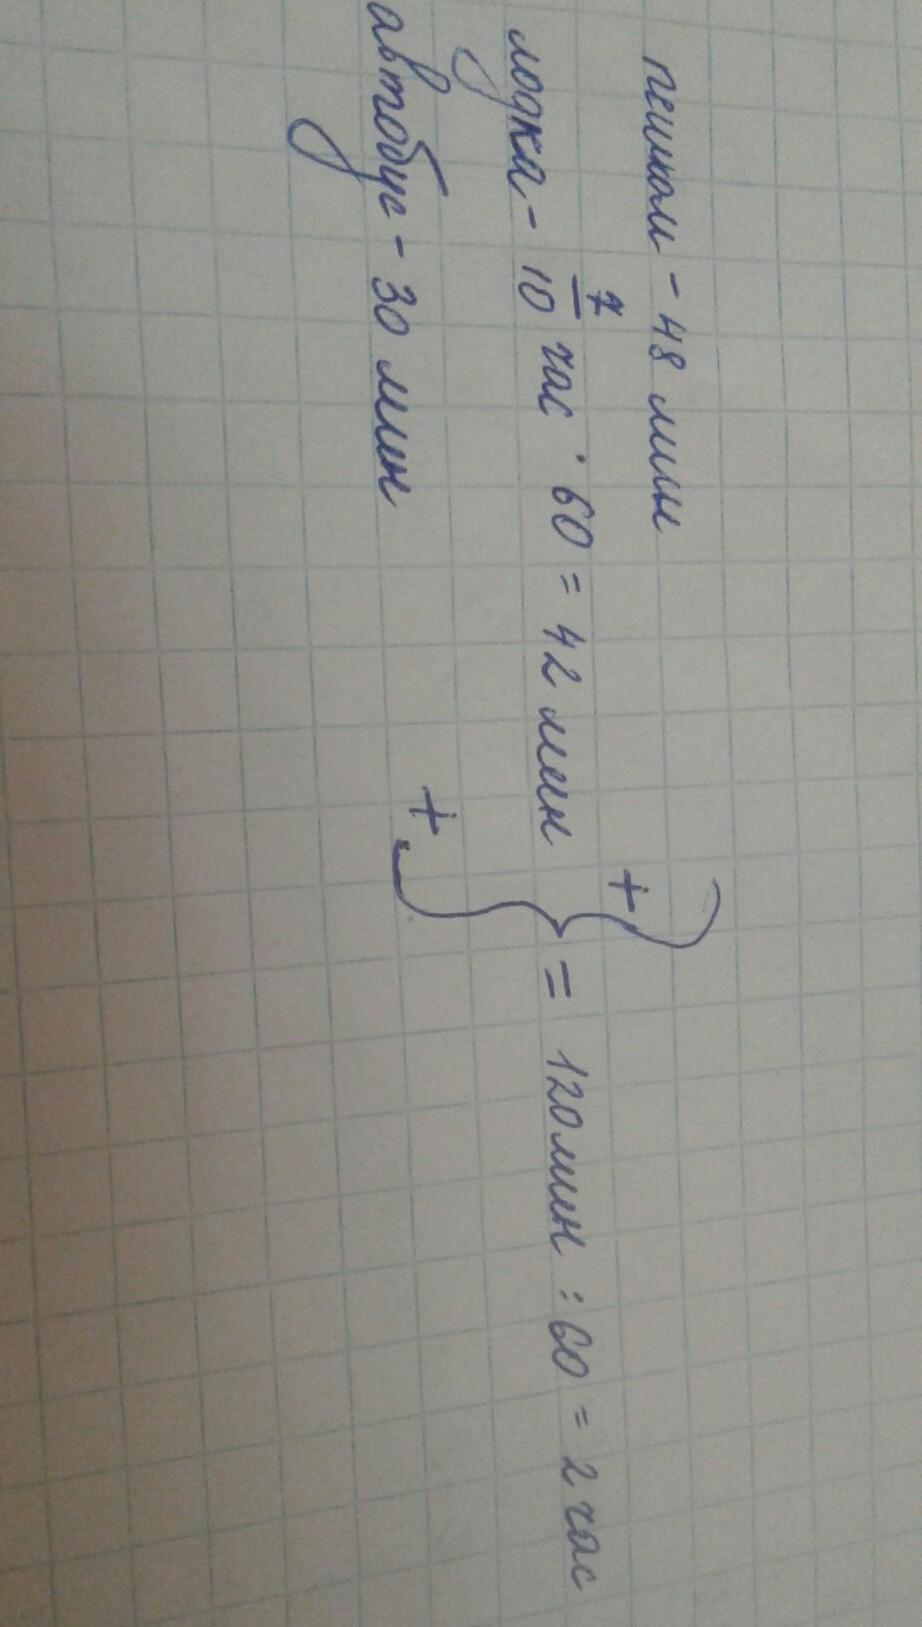 пешком - 48 мин
лодка - 7/10 час · 60 = 42 мин + + } = 120 мин : 60 = 2 час
автобус - 30 мин